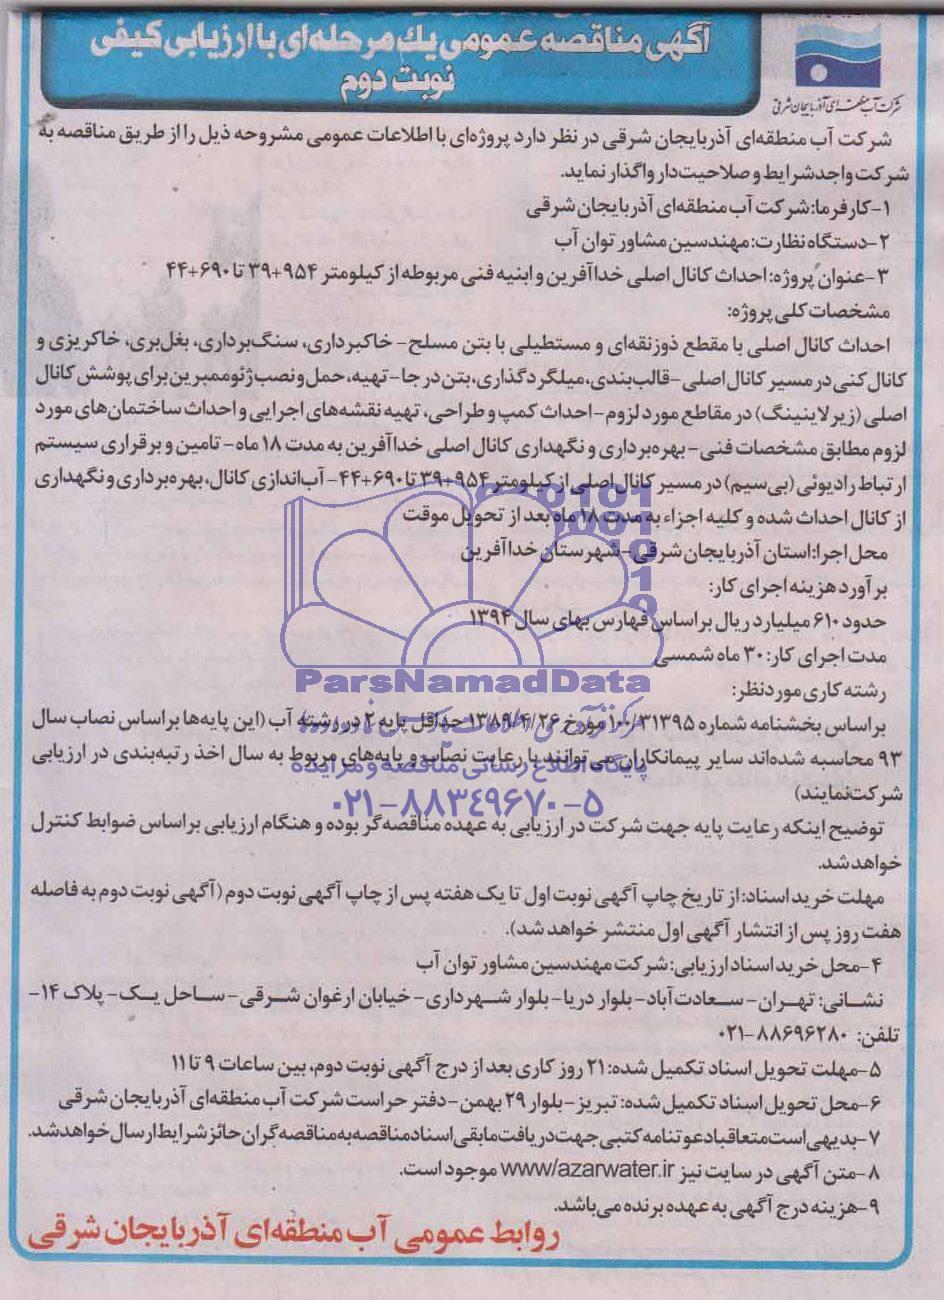 آگهی مناقصه عمومی یک مرحله‌ای با ارزیابی کیفی
نوبت دوم
شرکت آب منطقه‌ای آذربایجان شرقی
شرکت آب منطقه‌ای آذربایجان شرقی در نظر دارد پروژه‌ای با اطلاعات عمومی مشروحه ذیل را از طریق مناقصه به
شرکت واجد شرایط و صلاحیت‌دار واگذار نماید.
۱-کارفرما: شرکت آب منطقه‌ای آذربایجان شرقی
۲-دستگاه نظارت: مهندسین مشاور توان آب
۳-عنوان پروژه: احداث کانال اصلی خداآفرین و ابنیه فنی مربوطه از کیلومتر ۹۵۴+۳۹ تا ۶۹۰+۴۴
مشخصات کلی پروژه:
احداث کانال اصلی با مقطع ذوزنقه‌ای و مستطیلی با بتن مسلح- خاکبرداری، سنگ‌برداری، بغل‌بری، خاکریزی و
کانال کنی در مسیر کانال اصلی-قالب‌بندی، میلگردگذاری، بتن درجا-تهیه، حمل و نصب ژئوممبرین برای پوشش کانال
اصلی (زیر لاینینگ) در مقاطع مورد لزوم-احداث کمپ و طراحی، تهیه نقشه‌های اجرایی و احداث ساختمان‌های مورد
لزوم مطابق مشخصات فنی- بهره‌برداری و نگهداری کانال اصلی خداآفرین به مدت ۱۸ ماه- تامین و برقراری سیستم
ارتباط رادیوئی (بی‌سیم) در مسیر کانال اصلی از کیلومتر ۹۵۴+۳۹ تا ۶۹۰+۴۴- آب‌اندازی کانال، بهره‌برداری و نگهداری
از کانال احداث شده و کلیه اجزاء به مدت ۱۸ ماه بعد از تحویل موقت
محل اجرا: استان آذربایجان شرقی-شهرستان خداآفرین
برآورد هزینه اجرای کار:
حدود ۶۱۰ میلیارد ریال براساس فهارس بهای سال ۱۳۹۴
مدت اجرای کار: ۳۰ ماه شمسی
ParsNamadData
رشته کاری مورد نظر:
براساس بخشنامه شماره ۱۰۰/۳۱۳۹۵ مورخ ۱۳۸۹/۴/۲۶ حداقل پایه ۲ در رشته آب (این پایه‌ها براساس نصاب سال
۹۳ محاسبه شده‌اند سایر پیمانکاران می‌توانند با رعایت نصاب و پایه‌های مربوط به سال اخذ رتبه‌بندی در ارزیابی
پایگاه اطلاع رسانی مناقصه و مزایده
شرکت نمایند)
۰۲۱-۸۸۳۴۹۶۷۰-۵
توضیح اینکه رعایت پایه جهت شرکت در ارزیابی به عهده مناقصه‌گر بوده و هنگام ارزیابی براساس ضوابط کنترل
خواهد شد.
مهلت خرید اسناد: از تاریخ چاپ آگهی نوبت اول تا یک هفته پس از چاپ آگهی نوبت دوم (آگهی نوبت دوم به فاصله
هفت روز پس از انتشار آگهی اول منتشر خواهد شد).
۴-محل خرید اسناد ارزیابی: شرکت مهندسین مشاور توان آب
نشانی: تهران- سعادت‌آباد- بلوار دریا- بلوار شهرداری- خیابان ارغوان شرقی- ساحل یک- پلاک ۱۴-
تلفن: ۸۸۶۹۶۲۸۰-۰۲۱
۵-مهلت تحویل اسناد تکمیل شده: ۲۱ روز کاری بعد از درج آگهی نوبت دوم، بین ساعات ۹ تا ۱۱
۶-محل تحویل اسناد تکمیل شده: تبریز- بلوار ۲۹ بهمن-دفتر حراست شرکت آب منطقه‌ای آذربایجان شرقی
۷-بدیهی است متعاقبا دعوتنامه کتبی جهت دریافت مابقی اسناد مناقصه به مناقصه‌گران حائز شرایط ارسال خواهد شد.
۸-متن آگهی در سایت نیز www/azarwater.ir موجود است.
۹-هزینه درج آگهی به عهده برنده می‌باشد.
روابط عمومی آب منطقه‌ای آذربایجان شرقی